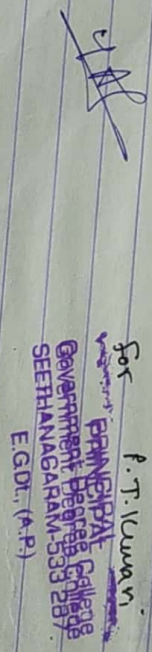 for P. T. Kumari
PRINCIPAL
Government Degree College
SEETHANAGARAM-533 287
E.G.Dt., (A.P.)